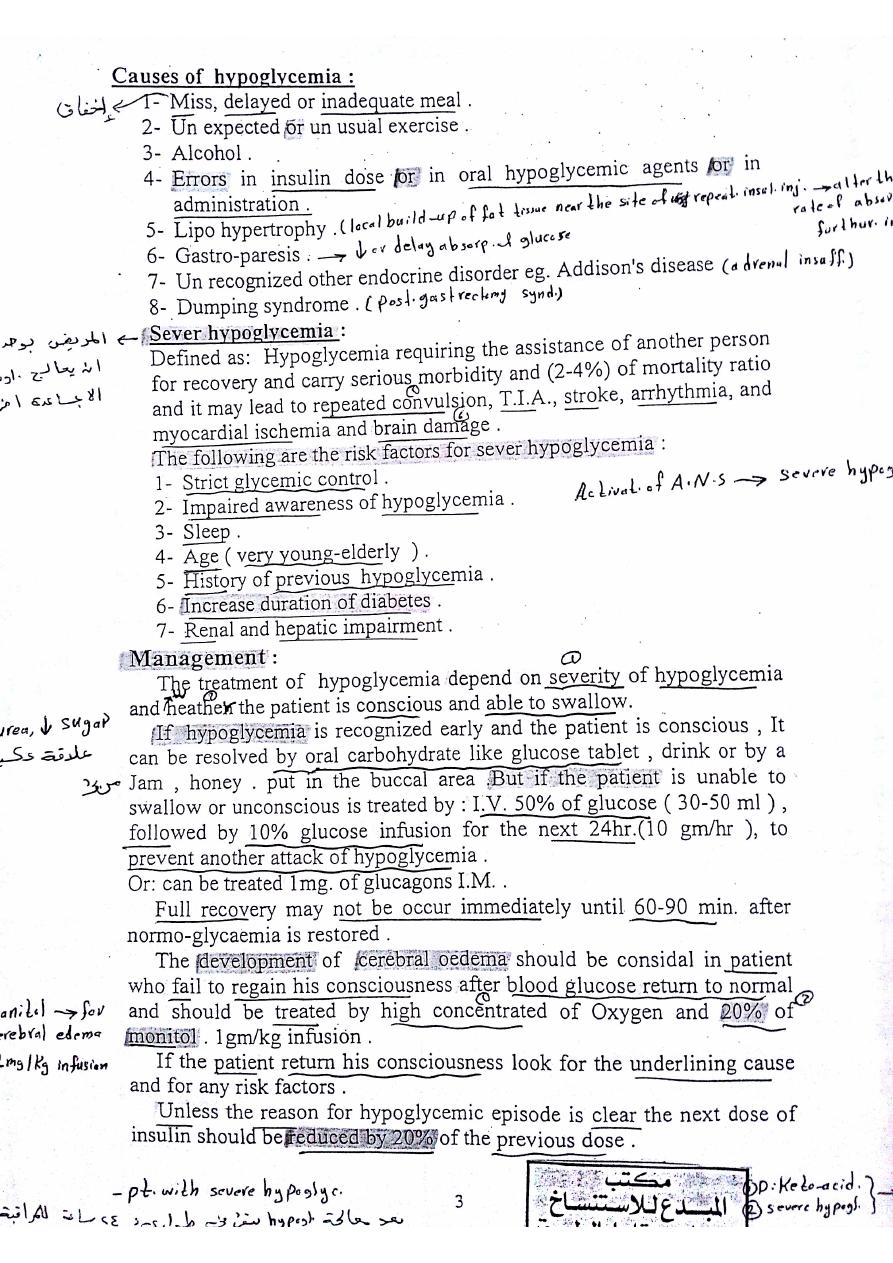 Causes of hypoglycemia :
إخفاق ← 1- Miss, delayed or inadequate meal .
2- Un expected or un usual exercise .
3- Alcohol .
4- Errors in insulin dose or in oral hypoglycemic agents or in
administration .
5- Lipo hypertrophy . (local build-up of fat tissue near the site of repeat. insul. inj. → alter th
rate of abso
furthur. i
6- Gastro-paresis . → ↓ or delay absorp. of glucose
7- Un recognized other endocrine disorder eg. Addison's disease (adrenal insuff.)
8- Dumping syndrome . (post-gastrectomy synd.)
Sever hypoglycemia :
← المريض
Defined as: Hypoglycemia requiring the assistance of another person
for recovery and carry serious morbidity and (2-4%) of mortality ratio
and it may lead to repeated convulsion, T.I.A., stroke, arrhythmia, and
myocardial ischemia and brain damage .
The following are the risk factors for sever hypoglycemia :
1- Strict glycemic control .
Activat. of A.N.S → severe hypog
2- Impaired awareness of hypoglycemia .
3- Sleep .
4- Age ( very young-elderly ) .
5- History of previous hypoglycemia .
6- Increase duration of diabetes .
7- Renal and hepatic impairment .
Management :
The treatment of hypoglycemia depend on severity of hypoglycemia
and heather the patient is conscious and able to swallow.
urea, ↓ sugar
If hypoglycemia is recognized early and the patient is conscious , It
علاقة
can be resolved by oral carbohydrate like glucose tablet , drink or by a
Jam , honey . put in the buccal area .But if the patient is unable to
swallow or unconscious is treated by : I.V. 50% of glucose ( 30-50 ml ) ,
followed by 10% glucose infusion for the next 24hr.(10 gm/hr ), to
prevent another attack of hypoglycemia .
Or: can be treated 1mg. of glucagons I.M. .
Full recovery may not be occur immediately until 60-90 min. after
normo-glycaemia is restored .
The development of cerebral oedema should be considal in patient
who fail to regain his consciousness after blood glucose return to normal
anitol → for
and should be treated by high concentrated of Oxygen and 20% of
erebral edema
monitol . 1gm/kg infusion .
mg/kg infusion
If the patient return his consciousness look for the underlining cause
and for any risk factors .
Unless the reason for hypoglycemic episode is clear the next dose of
insulin should be reduced by 20% of the previous dose .
- pt. with severe hypoglyc.
3
مكتب
المبدع للاستنساخ
① D: Keto-acid.
② severe hypogl.